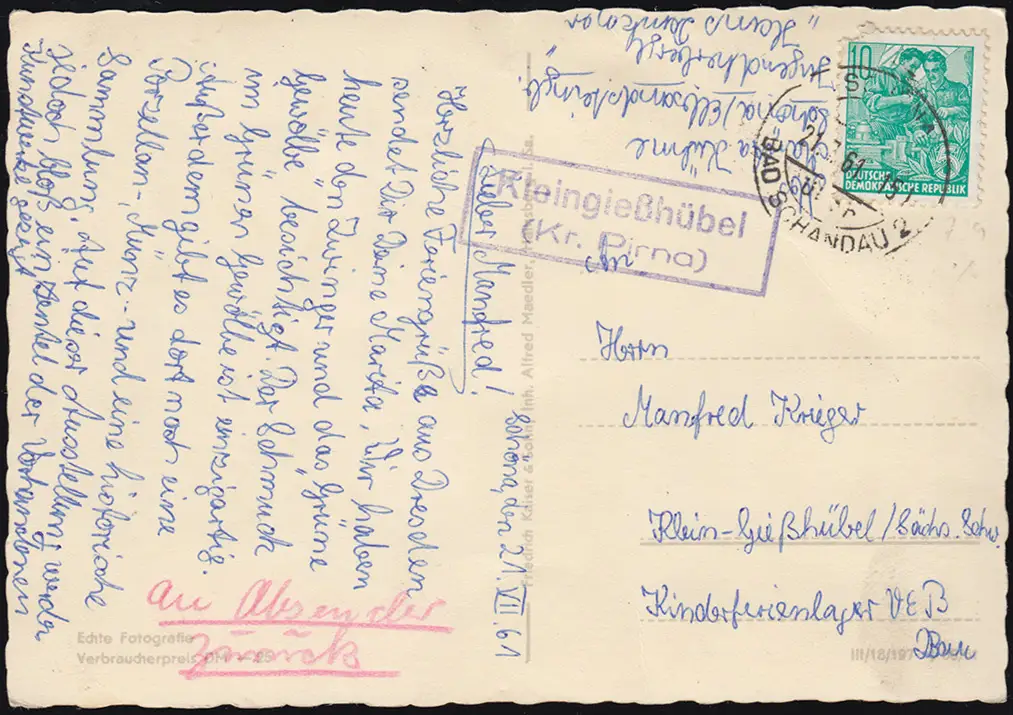 Schöna, den 21. VII. 61
Lieber Manfred!
Herzliche Feriengrüße aus Dresden
sendet Dir Deine Marita, Wir haben
heute den Zwinger und das „Grüne
Gewölbe" besichtigt. Der Schmuck
im Grünen Gewölbe ist einzigartig.
Außerdem gibt es dort noch eine
Porzellan-, Münz- und eine historische
Sammlung. Auf dieser Ausstellung werde
jedoch bloß ein Zentel der Vorhandenen
Kunstwerke gezeigt
Kühne
Schöna/Elbsandsteingb.
Jugendherberge
„Hans Dankner"
10
DEUTSCHE
DEMOKRATISCHE REPUBLIK
SCHÖNA
BAD SCHANDAU 2
Kleingießhübel
(Kr. Pirna)
Herrn
Manfred Krieger
Klein-Gießhübel/Sächs. Schw.
Kinderferienlager VEB
Bau
an Absender
zurück
Echte Fotografie
Verbraucherpreis DM -,25
Friedrich Kaiser & Sohn, Inh. Alfred Maedler,
III/18/197